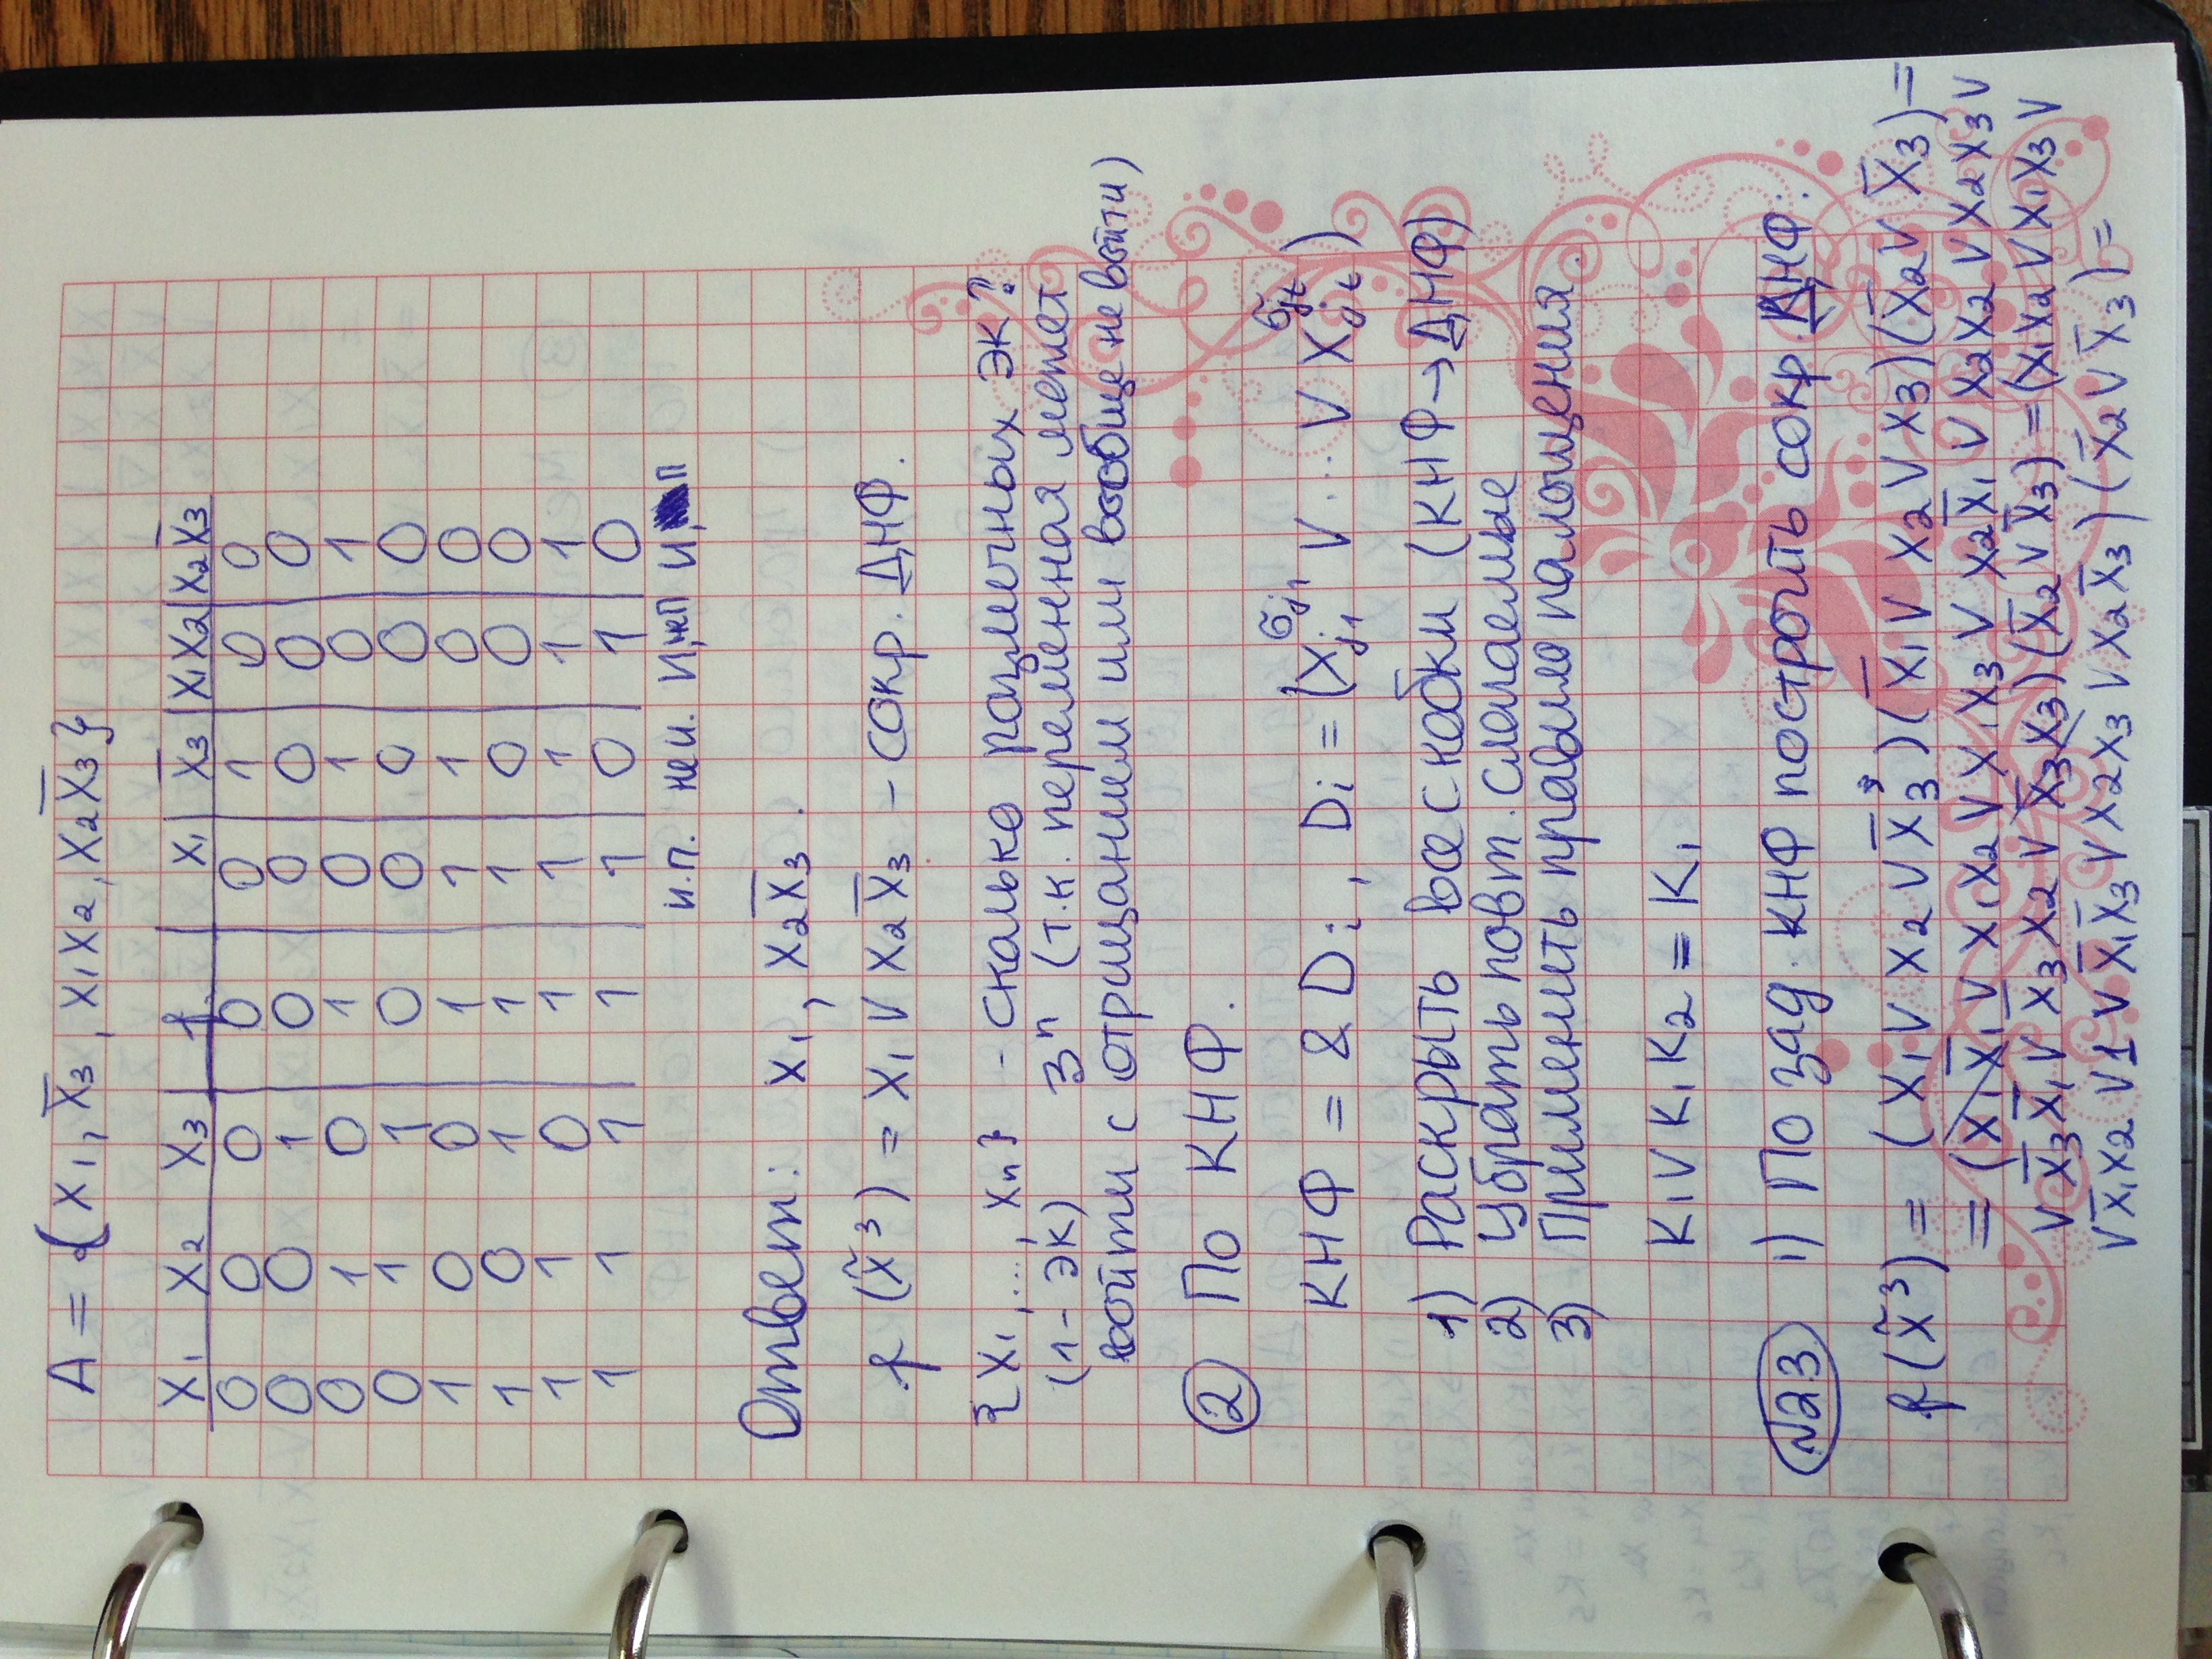 A = {x₁, x̄₃, x₁x₂, x₂x̄₃}
x₁ x₂ x₃ | f | x₁ | x̄₃ | x₁x₂ | x₂x̄₃
0 0 0 0 0 1 0 0
0 0 1 0 0 0 0 0
0 1 0 1 0 1 0 1
0 1 1 0 0 0 0 0
1 0 0 1 1 1 0 0
1 0 1 1 1 0 0 0
1 1 0 1 1 1 1 1
1 1 1 1 1 0 1 0
и.п. не и. И, неп И, п
Ответ: x₁, x₂x̄₃.
f(x̃³) = x₁ ∨ x₂x̄₃ – сокр. ДНФ.
{x₁, ..., xₙ} - сколько различных ЭК?
(1 - ЭК) 3ⁿ (т.к. переменная может
войти с отрицанием или вообще не войти)
② По КНФ.
КНФ = & Dᵢ, Dᵢ = (x_j₁^σj₁ ∨ ... ∨ x_jt^σjt)
1) Раскрыть все скобки (КНФ → ДНФ)
2) Убрать повт. слагаемые
3) Применить правило поглощения.
K₁ ∨ K₁K₂ = K₁
№23 1) По зад. КНФ построить сокр. ДНФ:
f(x̃³) = (x₁ ∨ x₂ ∨ x̄₃)(x̄₁ ∨ x₂ ∨ x₃)(x̄₂ ∨ x̄₃) =
= (x₁x̄₁ ∨ x₁x₂ ∨ x₁x₃ ∨ x₂x̄₁ ∨ x₂x₂ ∨ x₂x₃ ∨
∨ x̄₃x̄₁ ∨ x̄₃x₂ ∨ x̄₃x₃)(x̄₂ ∨ x̄₃) = (x₁x₂ ∨ x₁x₃ ∨
∨ x̄₁x₂ ∨ 1 ∨ x̄₁x̄₃ ∨ x₂x₃ ∨ x₂x̄₃)(x̄₂ ∨ x̄₃) =